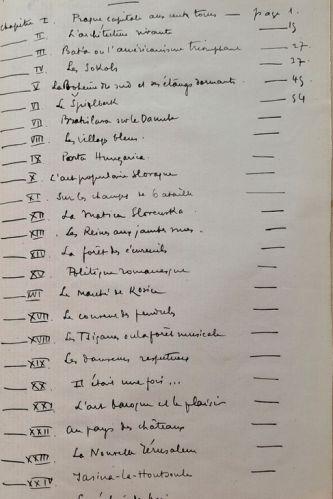 Chapitre I. Prague capitale aux cent tours — page 1.
II. L'architecture vivante — 15
III. Bata ou l'américanisme triomphant — 27
IV. Les Sokols — 37
V La Bohême du sud et ses étangs dormants — 45
VI Le Špielberk — 54
VII Bratislava sur le Danube —
VIII Les villages bleus —
IX Porta Hungarica —
X. L'art populaire slovaque —
XI Sur les champs de bataille —
XII La Matica Slovenska —
XIII. Les Reines aux jambes nues —
XIV La forêt des écureuils —
XV Politique romanesque —
XVI Le marché de Kosice —
XVII Le couvreur de —
XVIII Les Tsiganes ou la forêt musicale —
XIX Les danseuses —
XX Il était une fois... —
XXI L'art baroque et le plaisir —
XXII au pays des châteaux —
XXIII La Nouvelle Jérusalem —
XXIV Jasina-la-Houtsoule —